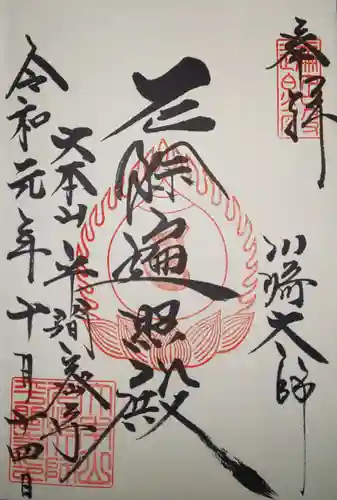 奉拝
川崎大師
厄除遍照殿
大本山平間寺
令和元年十月廿四日